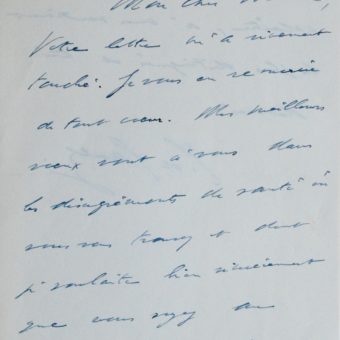 Mon cher
Votre lettre m'a vivement
touché. Je vous en remercie
de tout cœur. Mes meilleurs
vœux vont à vous dans
les désagréments de santé où
vous vous trouvez et dont
je souhaite bien vivement
que vous soyez au